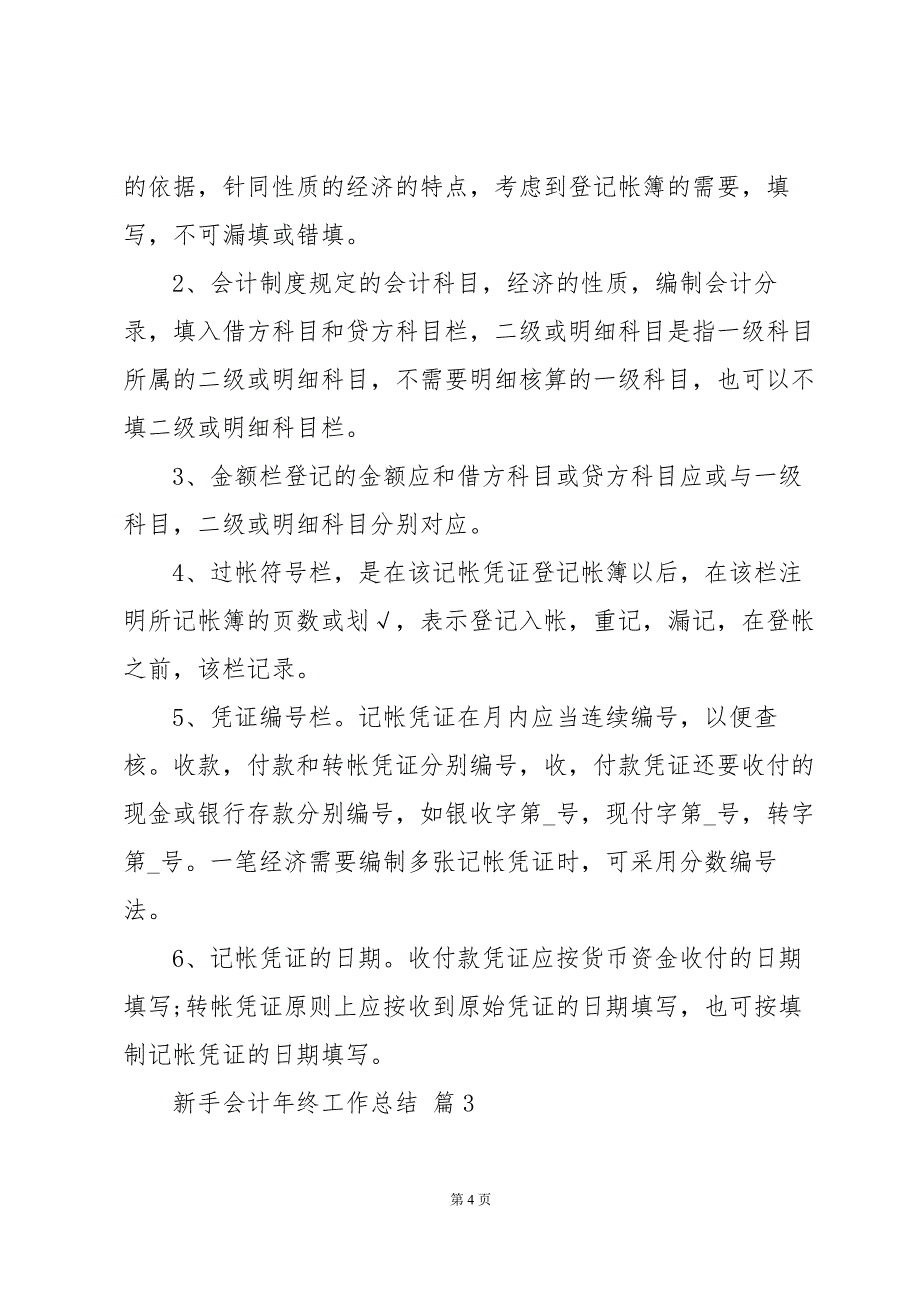 的依据，针同性质的经济的特点，考虑到登记帐簿的需要，填
写，不可漏填或错填。
2、会计制度规定的会计科目，经济的性质，编制会计分
录，填入借方科目和贷方科目栏，二级或明细科目是指一级科目
所属的二级或明细科目，不需要明细核算的一级科目，也可以不
填二级或明细科目栏。
3、金额栏登记的金额应和借方科目或贷方科目应或与一级
科目，二级或明细科目分别对应。
4、过帐符号栏，是在该记帐凭证登记帐簿以后，在该栏注
明所记帐簿的页数或划√，表示登记入帐，重记，漏记，在登帐
之前，该栏记录。
5、凭证编号栏。记帐凭证在月内应当连续编号，以便查
核。收款，付款和转帐凭证分别编号，收，付款凭证还要收付的
现金或银行存款分别编号，如银收字第_号，现付字第_号，转字
第_号。一笔经济需要编制多张记帐凭证时，可采用分数编号
法。
6、记帐凭证的日期。收付款凭证应按货币资金收付的日期
填写;转帐凭证原则上应按收到原始凭证的日期填写，也可按填
制记帐凭证的日期填写。
新手会计年终工作总结 篇3
第 4 页